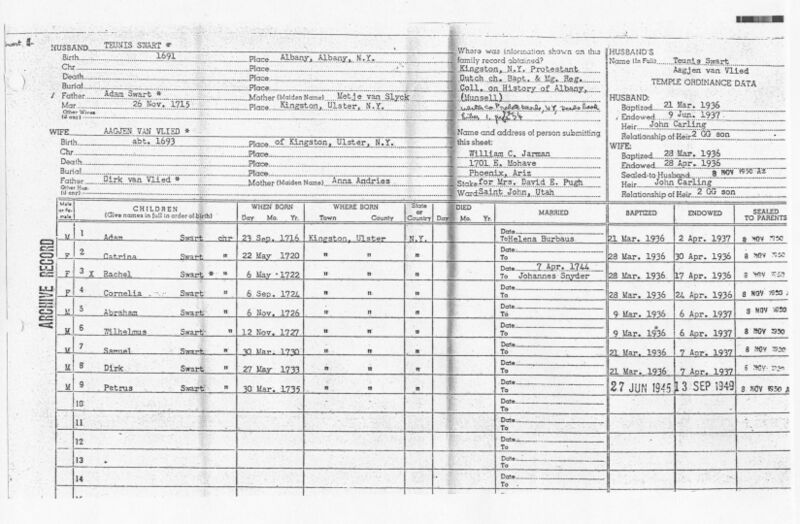 HUSBAND TEUNIS SWART *
Birth 1691 Place Albany, Albany, N.Y.
Chr Place
Death Place
Burial Place
Father Adam Swart * Mother (Maiden Name) Metje van Slyck
Mar 26 Nov. 1715 Place Kingston, Ulster, N.Y.
Other Wives (if any)
WIFE AAGJEN VAN VLIED *
Birth abt. 1693 Place of Kingston, Ulster, N.Y.
Chr Place
Death Place
Burial Place
Father Dirk van Vlied * Mother (Maiden Name) Anna Andries
Other Hus. (if any)
Where was information shown on this family record obtained?
Kingston, N.Y. Protestant
Dutch ch. Bapt. & Mg. Reg.
Coll. on History of Albany,
(Munsell)
Name and address of person submitting this sheet:
William C. Jarman
1701 E. Mohave
Phoenix, Ariz
Stake for Mrs. David E. Pugh
Ward Saint John, Utah
HUSBAND'S Name (in Full) Teunis Swart
Aagjen van Vlied
TEMPLE ORDINANCE DATA
HUSBAND:
Baptized 21 Mar. 1936
Endowed 9 Jun. 1937
Heir John Carling
Relationship of Heir 2 GG son
WIFE:
Baptized 28 Mar. 1936
Endowed 28 Apr. 1936
Sealed to Husband 8 NOV 1950 AZ
Heir John Carling
Relationship of Heir 2 GG son
Male or female
CHILDREN
(Give names in full in order of birth)
WHEN BORN Day Mo. Yr.
WHERE BORN Town County
State or Country
DIED Day Mo. Yr.
MARRIED
BAPTIZED
ENDOWED
SEALED TO PARENTS
M 1 Adam Swart chr 23 Sep. 1716 Kingston, Ulster N.Y. Date To Helena Burbaus 21 Mar. 1936 2 Apr. 1937 8 NOV 1950
F 2 Catrina Swart " 22 May 1720 " " Date To 28 Mar. 1936 30 Apr. 1936 8 NOV 1950
F 3 X Rachel Swart * " 6 May 1722 " " Date 7 Apr. 1744 To Johannes Snyder 28 Mar. 1936 17 Apr. 1936 8 NOV 1950
F 4 Cornelia Swart " 6 Sep. 1724 " " Date To 28 Mar. 1936 24 Apr. 1936 8 NOV 1950
M 5 Abraham Swart " 6 Nov. 1726 " " Date To 9 Mar. 1936 6 Apr. 1937 8 NOV 1950
M 6 Wilhelmus Swart " 12 Nov. 1727 " " Date To 9 Mar. 1936 6 Apr. 1937 8 NOV 1950
M 7 Samuel Swart " 30 Mar. 1730 " " Date To 21 Mar. 1936 7 Apr. 1937 8 NOV 1950
M 8 Dirk Swart " 27 May 1733 " " Date To 21 Mar. 1936 7 Apr. 1937 8 NOV
M 9 Petrus Swart " 30 Mar. 1735 " " Date To 27 JUN 1945 13 SEP 1949 8 NOV 1950
10 Date To
11 Date To
12 Date To
13 Date To
14 Date To
ARCHIVE RECORD